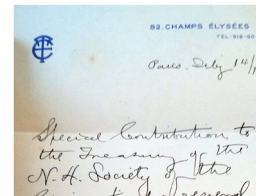 82. CHAMPS ÉLYSÉES
TEL
Paris. July 14/
Special Contribution to
the Treasury of the
N.H. Society of the